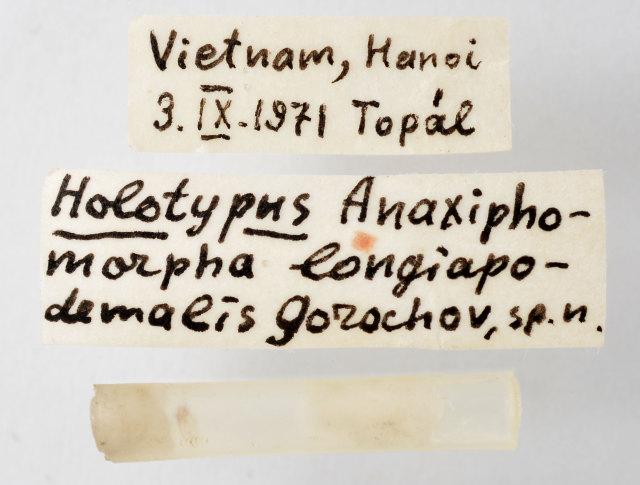 Vietnam, Hanoi
3. IX. 1971 Topál
Holotypus Anaxipho-
morpha longiapo-
demalis Gorochov, sp. n.